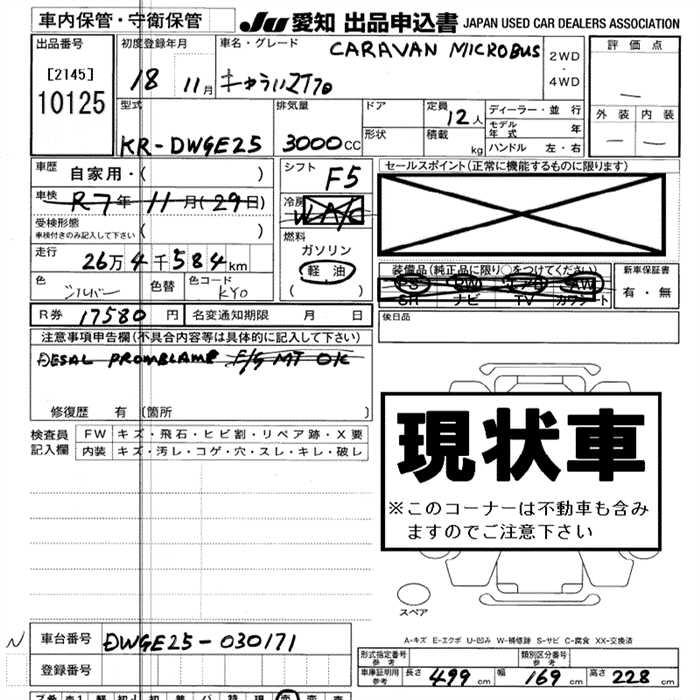 車内保管・守衛保管 JU 愛知 出品申込書 JAPAN USED CAR DEALERS ASSOCIATION
出品番号 初度登録年月 車名・グレード CARAVAN MICROBUS 2WD・4WD 評価点
[2145] 18 11月
10125 外装 内装
型式 排気量 ドア 定員 12人 ディーラー・並行
KR-DWGE25 3000CC 形状 積載 kg モデル年式 年
ハンドル 左・右
車歴 自家用・( ) シフト F5 セールスポイント(正常に機能するものに限ります)
車検 R7年 11月(29日) 冷房 W A/C
受検形態 ( )
車検付きのみ記入して下さい
燃料 ガソリン
走行 26万4千584km 軽油
( )
装備品(純正品に限り○をつけてください) 新車保証書
PS PW エアB AW 有・無
SR ナビ TV カワシート
色 シルバー 色替 色コード KY0
後日品
R券 17580円 名変通知期限 月 日
注意事項申告欄(不具合内容等は具体的に記入して下さい)
DESAL PROMBLAME F/G MT OK
修復歴 有 (箇所 )
検査員記入欄 FW キズ・飛石・ヒビ割・リペア跡・X要
内装 キズ・汚レ・コゲ・穴・スレ・キレ・破レ
現状車
※このコーナーは不動車も含み
ますのでご注意下さい
スペア
A-キズ E-エクボ U-凹み W-補修跡 S-サビ C-腐食 XX-交換済
N 車台番号 DWGE25-030171
登録番号
形式指定番号 参考 類別区分番号 参考
車庫証明用 参考 長さ 499cm 幅 169cm 高さ 228cm